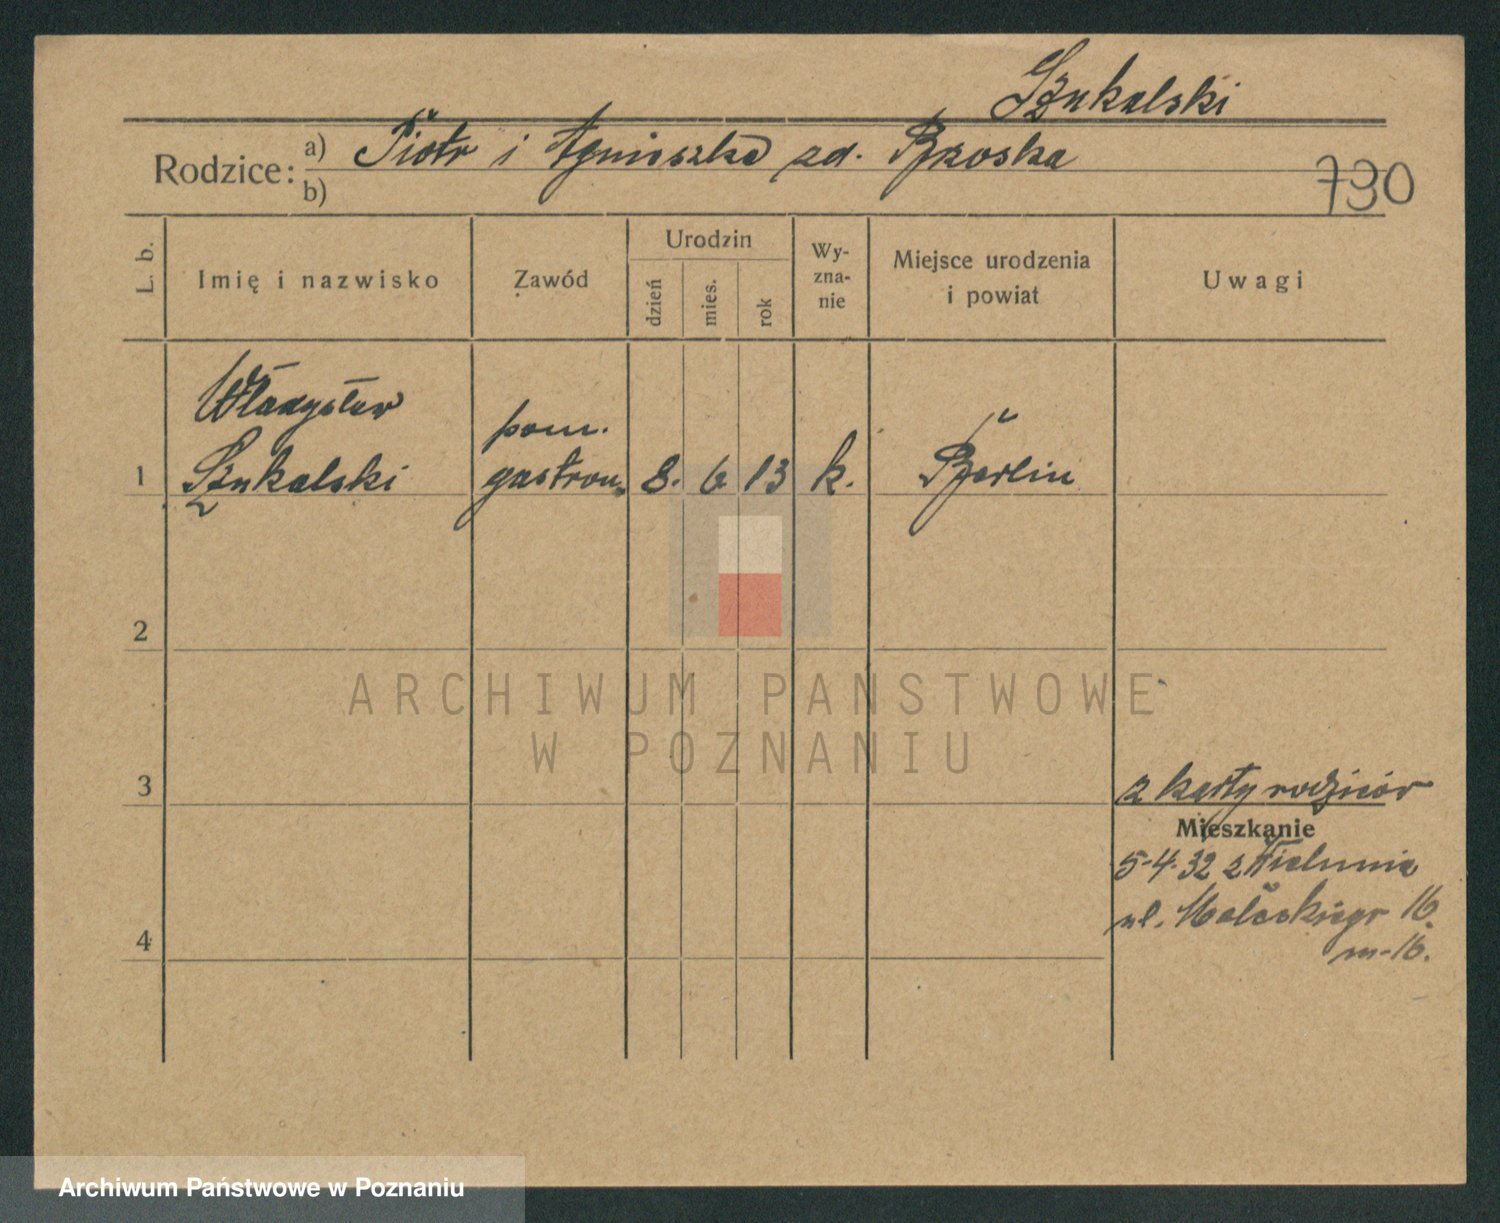 Szukalski
Rodzice: a) Piotr i Agnieszka zd. Brzoska
b)
730
L. b.
Imię i nazwisko
Zawód
Urodzin
dzień
mies.
rok
Wy-
zna-
nie
Miejsce urodzenia
i powiat
Uwagi
Władysław
pom.
1 Szukalski gastron. 8. 6 13 k. Berlin
2
3
z karty rodziców
Mieszkanie
5-4-32 z Wielunia
ul. 16
4
m-16.
ARCHIWUM PAŃSTWOWE
W POZNANIU
Archiwum Państwowe w Poznaniu